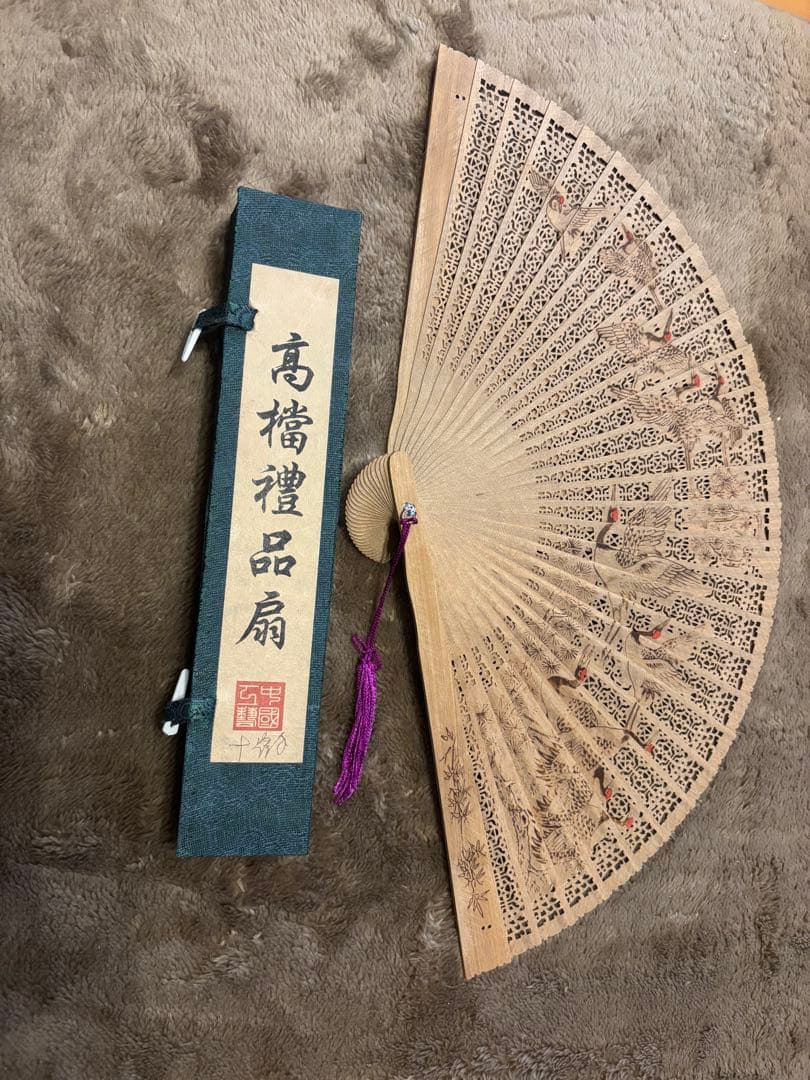 高檔禮品扇
中國工藝